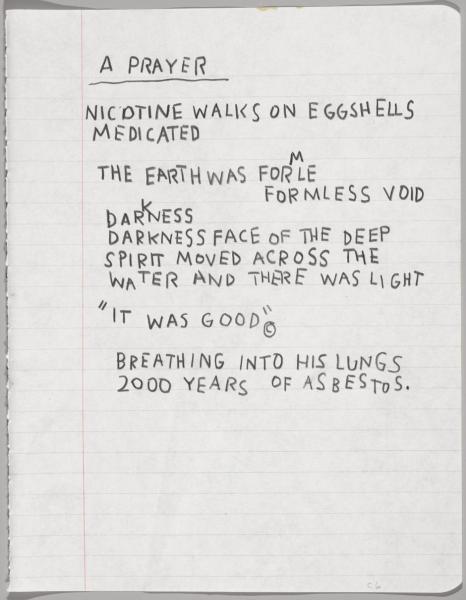 A PRAYER
NICOTINE WALKS ON EGGSHELLS
MEDICATED
THE EARTH WAS FORMLE
FORMLESS VOID
DARKNESS
DARKNESS FACE OF THE DEEP
SPIRIT MOVED ACROSS THE
WATER AND THERE WAS LIGHT
"IT WAS GOOD"©
BREATHING INTO HIS LUNGS
2000 YEARS OF ASBESTOS.